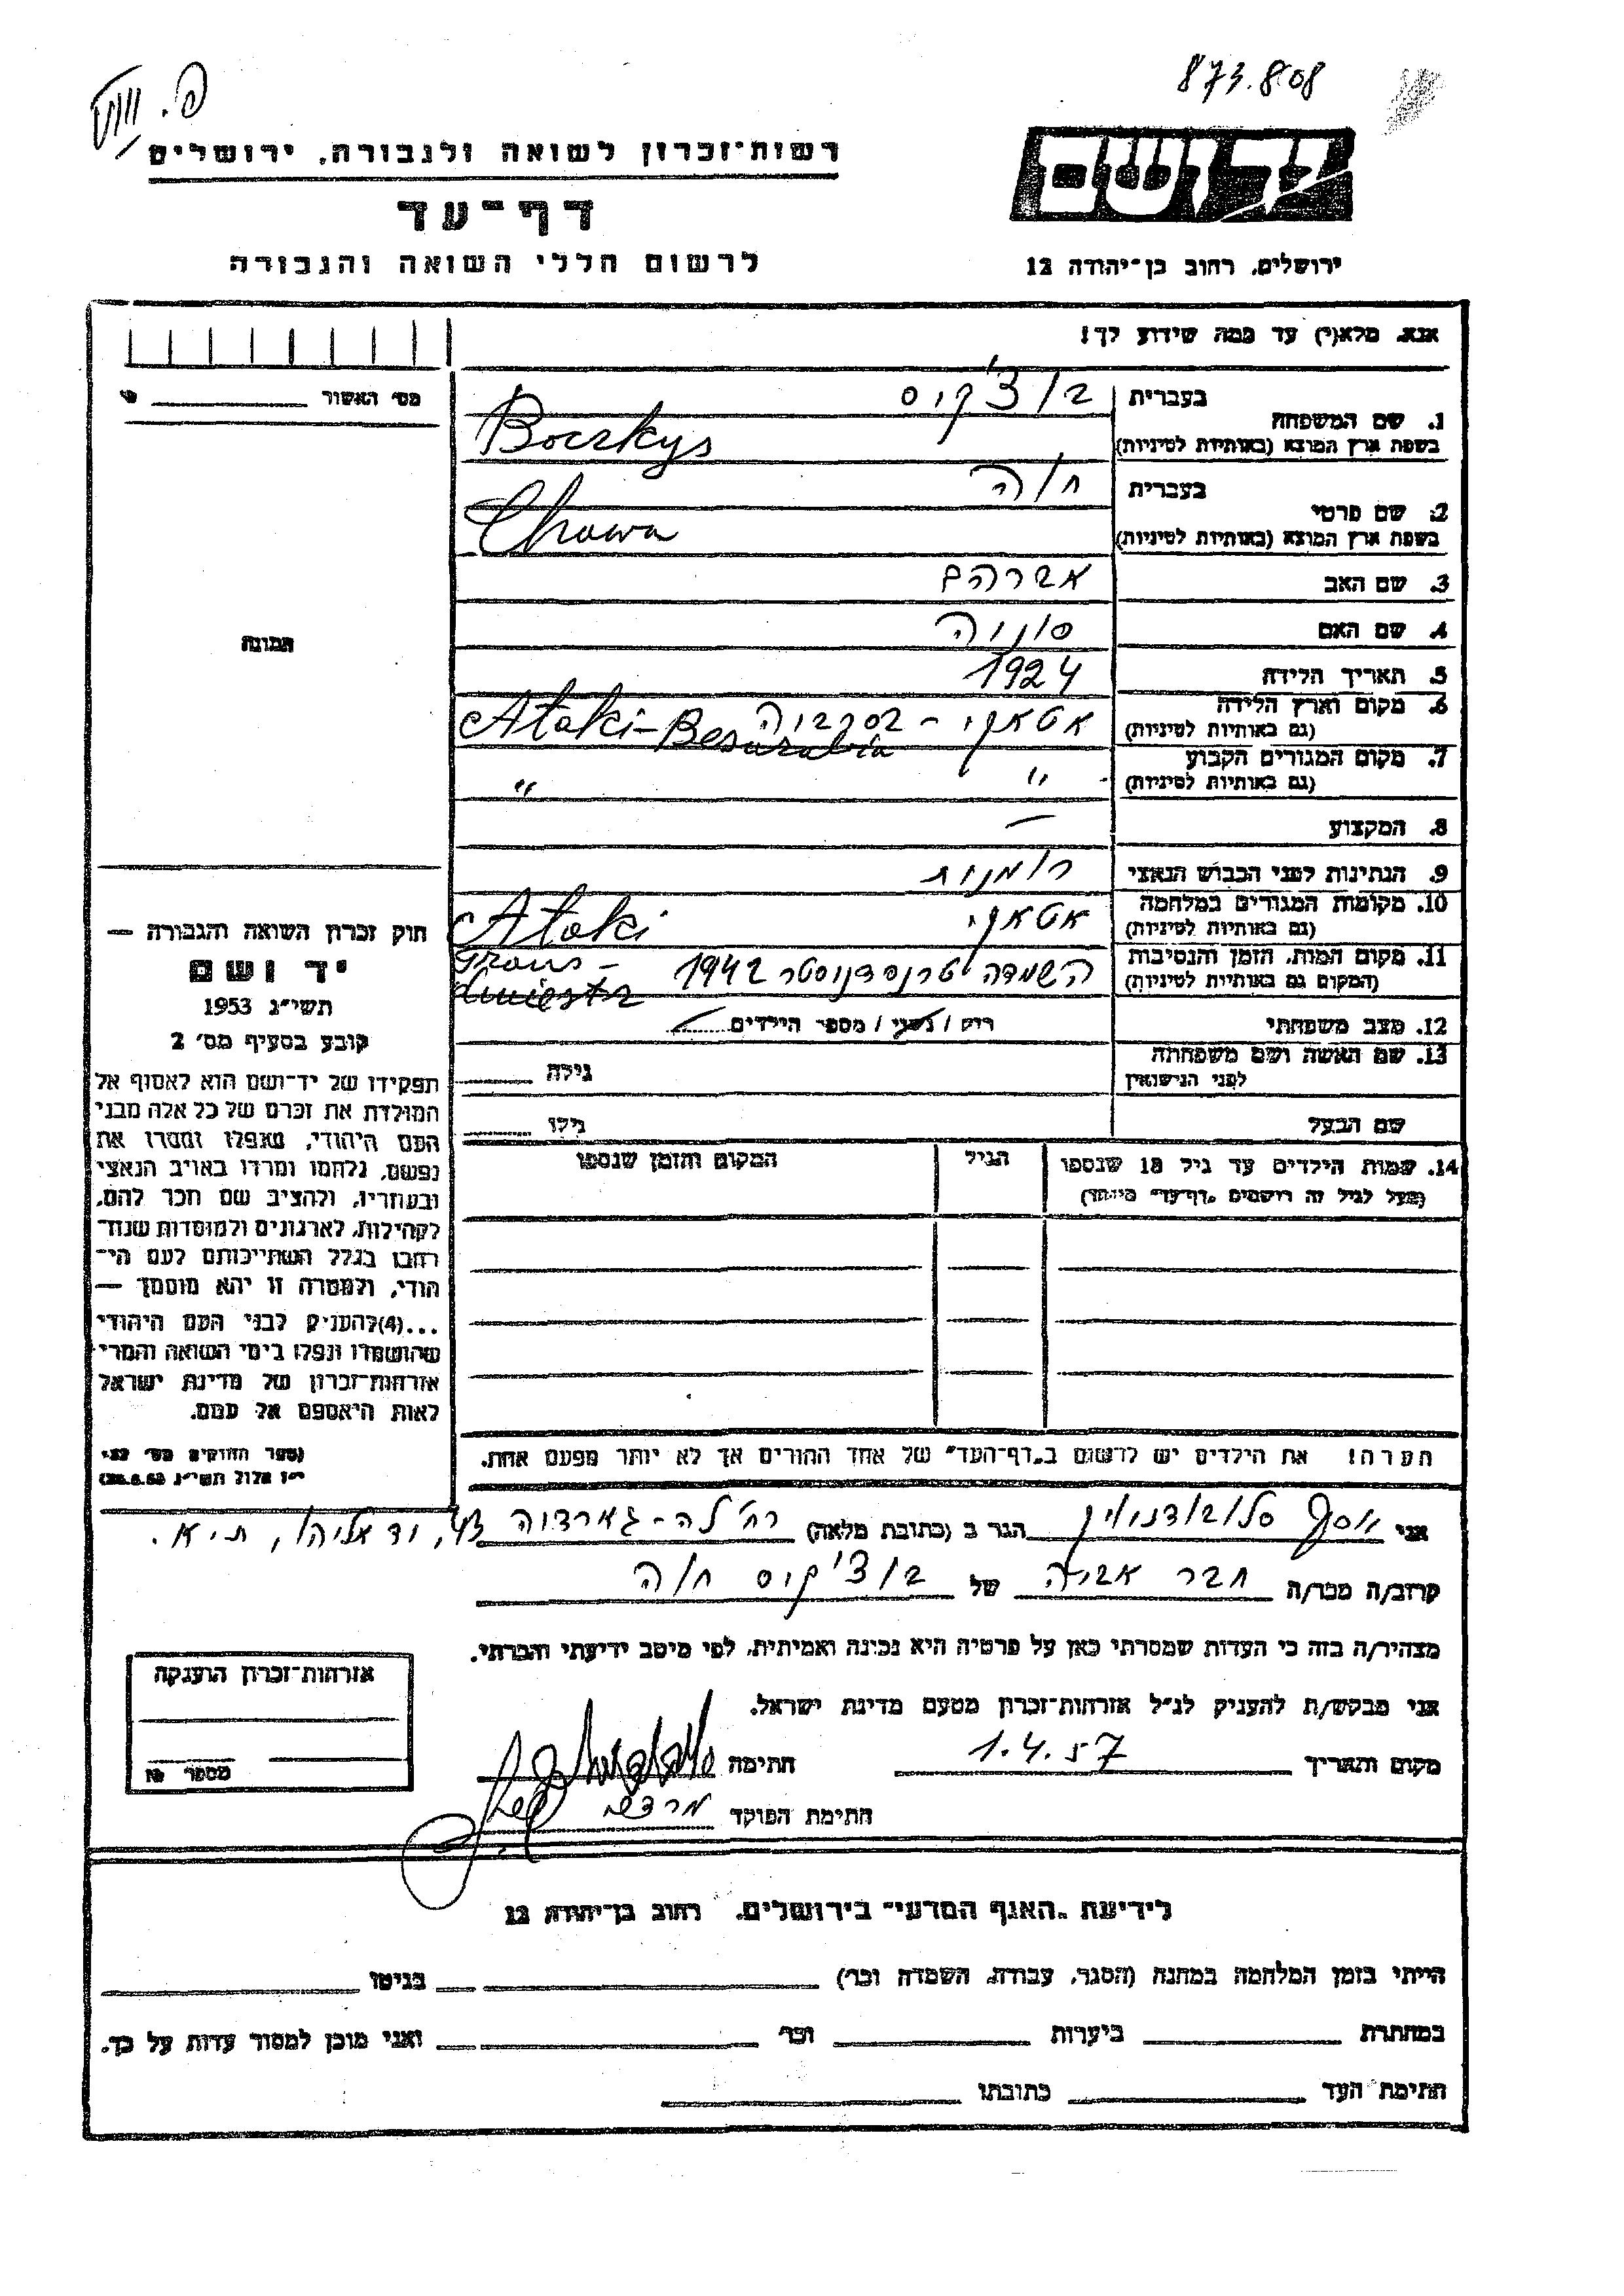 873.808
יד ושם
ירושלים, רחוב בן־יהודה 12
רשות־זכרון לשואה ולגבורה, ירושלים
דף־עד
לרשום חללי השואה והגבורה
אנא, מלא(י) עד כמה שידוע לך!
מס' האשור
1. שם המשפחה
בעברית בוצ'קיס
בשפת ארץ המוצא (באותיות לטיניות) Boczkys
2. שם פרטי
בעברית חוה
בשפת ארץ המוצא (באותיות לטיניות) Chawa
3. שם האב אברהם
4. שם האם סוניה
5. תאריך הלידה 1924
6. מקום וארץ הלידה אטאקי - בסרביה Ataki-Besarabia
(גם באותיות לטיניות)
7. מקום המגורים הקבוע " "
(גם באותיות לטיניות)
8. המקצוע —
9. הנתינות לפני הכבוש הנאצי רומנית
10. מקומות המגורים במלחמה אטאקי Ataki
(גם באותיות לטיניות)
11. מקום המות, הזמן והנסיבות השמדה טרנסדניסטר 1942 Trans-
(המקום גם באותיות לטיניות) dniestr
12. מצב משפחתי רווק / נשוי / מספר הילדים
13. שם האשה ושם משפחתה גילה
לפני הנישואין
שם הבעל גילו
14. שמות הילדים עד גיל 18 שנספו הגיל המקום והזמן שנספו
(מעל לגיל זה רושמים "דף־עד" מיוחד)
הערה! את הילדים יש לרשום ב"דף־העד" של אחד ההורים אך לא יותר מפעם אחת.
תמונה
חוק זכרון השואה והגבורה —
יד ושם
תשי"ג 1953
קובע בסעיף מס' 2
תפקידו של יד־ושם הוא לאסוף אל
המולדת את זכרם של כל אלה מבני
העם היהודי, שנפלו ומסרו את
נפשם, נלחמו ומרדו באויב הנאצי
ובעוזריו, ולהציב שם וזכר להם,
לקהילות, לארגונים ולמוסדות שנח־
רבו בגלל השתייכותם לעם הי־
הודי, ולמטרה זו יהא מוסמך —
...(4)להעניק לבני העם היהודי
שהושמדו ונפלו בימי השואה והמרי
אזרחות־זכרון של מדינת ישראל
לאות היאספם אל עמם.
(ספר החוקים מס' 132
י"ז אלול תשי"ג 28.8.53)
אני יוסף הגר ב (כתובת מלאה) רח' לה-גארדיה 43, יד אליהו, ת"א.
קרוב/ה מכר/ה חבר של בוצ'קיס חוה
מצהיר/ה בזה כי העדות שמסרתי כאן על פרטיה היא נכונה ואמיתית, לפי מיטב ידיעתי והכרתי.
אני מבקש/ת להעניק לנ"ל אזרחות־זכרון מטעם מדינת ישראל.
מקום ותאריך 1.4.57 חתימה
חתימת הפוקד
אזרחות־זכרון הוענקה
מספר
לידיעת "האגף המדעי" בירושלים, רחוב בן־יהודה 12
הייתי בזמן המלחמה במחנה (הסגר, עבודה, השמדה וכו') בגיטו
במחתרת ביערות וכו' ואני מוכן למסור עדות על כך.
חתימת העד כתובתו